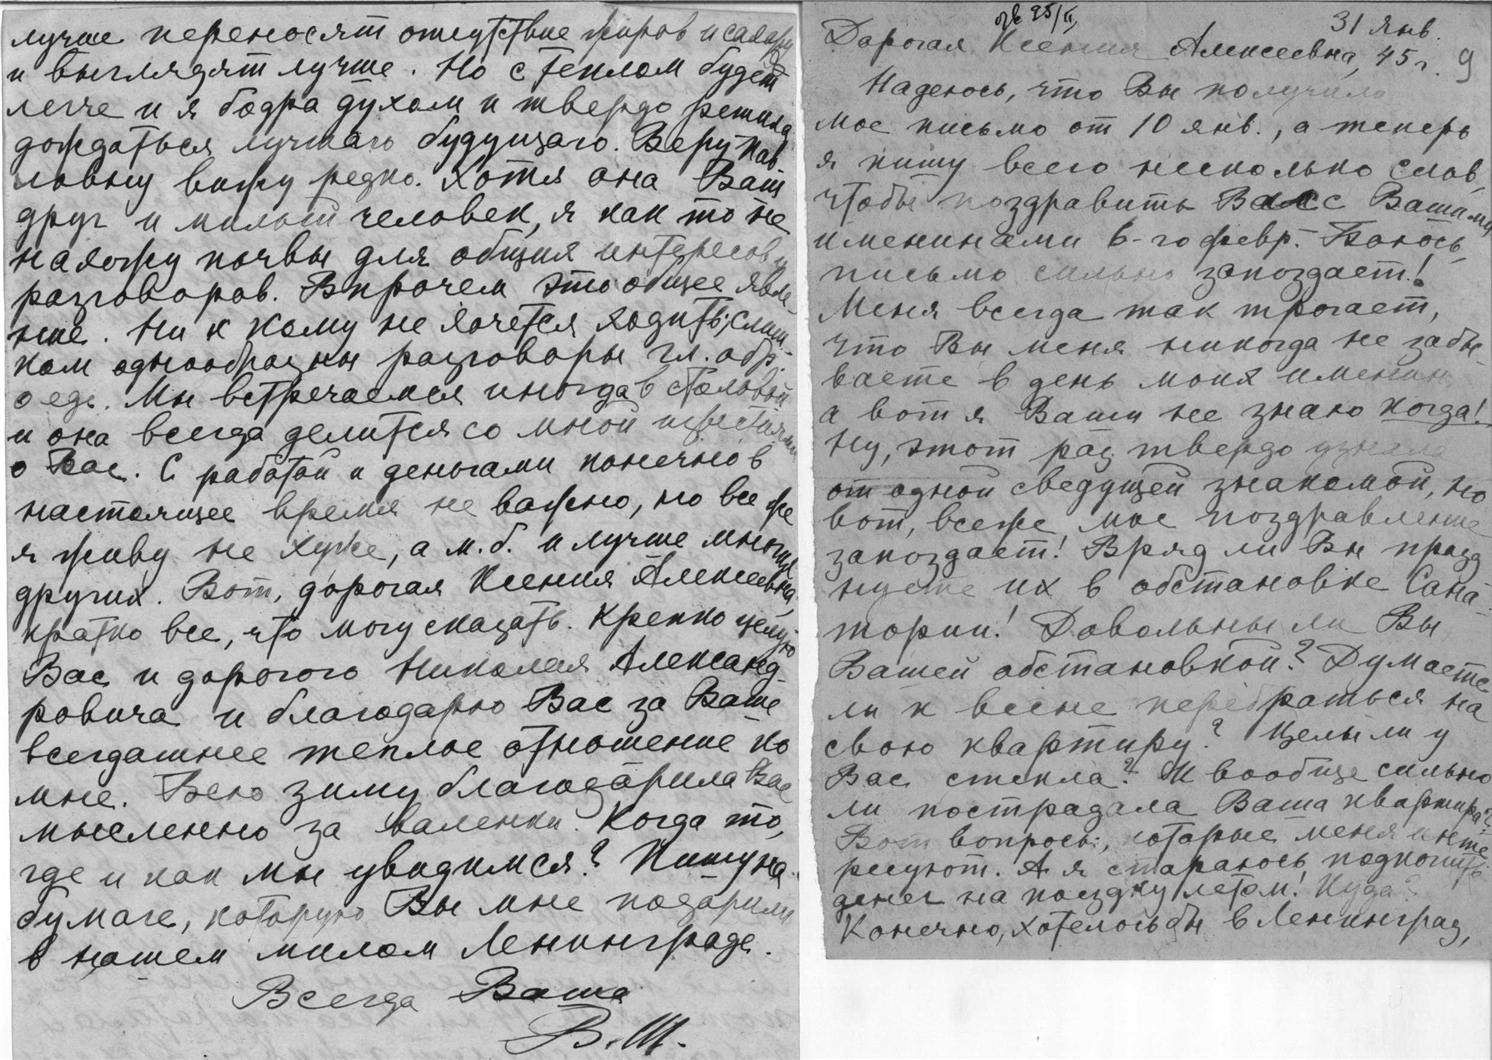 лучше переносят отсутствие жиров и сахару
и выглядят лучше. Но с теплом будет
легче и я бодра духом и твердо решила
дождаться лучшаго будущаго. Веру Пав
ловну вижу редко. Хотя она Ваш
друг и милый человек, я как то не
нахожу почвы для общих интересов и
разговоров. Впрочем это общее явле-
ние. Ни к кому не хочется ходить, слиш-
ком однообразны разговоры гл. обр.
о еде. Мы встречаемся иногда в столовой
и она всегда делится со мной известиями
о Вас. С работой и деньгами конечно в
настоящее время не важно, но все же
я живу не хуже, а м.б. и лучше многих
других. Вот, дорогая Ксения Алексеевна,
кратко все, что могу сказать. Крепко целую
Вас и дорогого Николая Александ-
ровича и благодарю Вас за Ваше
всегдашнее теплое отношение ко
мне. Всю зиму благодарила Вас
мысленно за валенки. Когда то,
где и как мы увидимся? Пишу на
бумаге, которую Вы мне подарили
в нашем милом Ленинграде.
Всегда Ваша
В.Ш.
отв 25/II
31 янв.
Дорогая Ксения Алексеевна, 45 г. 9
Надеюсь, что Вы получили
мое письмо от 10 янв., а теперь
я пишу всего несколько слов,
чтобы поздравить Вас с Вашими
именинами 6-го февр. Боюсь,
письмо сильно запоздает!
Меня всегда так трогает,
что Вы меня никогда не забы
ваете в день моих именин,
а вот я Ваши не знаю когда!
Ну, этот раз твердо узнала
от одной сведущей знакомой, но
вот, все же мое поздравление
запоздает! Вряд ли Вы празд
нуете их в обстановке Сана-
тории! Довольны ли Вы
Вашей обстановкой? Думаете
ли к весне перебраться на
свою квартиру? Целы ли у
Вас стекла? И вообще сильно
ли пострадала Ваша квартира?
Вот вопросы, которые меня инте
ресуют. А я стараюсь подкопить
денег на поездку летом! Куда?
Конечно, хотелось бы в Ленинград,